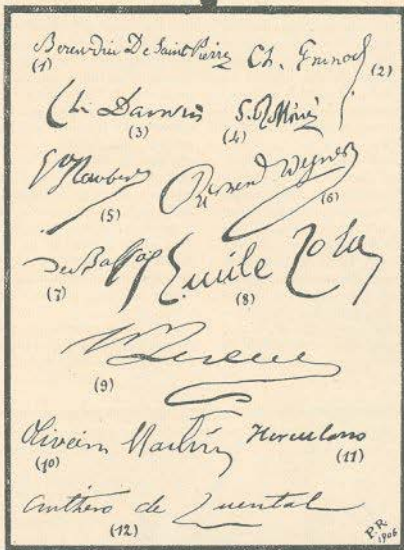 Bernardin De Saint Pierre Ch. Gounod
(1) (2)
Ch. Darwin
(3) (4)
G Flaubert Richard Wagner
(5) (6)
De Balzac Emile Zola
(7) (8)
(9)
Oliveira Martins Herculano
(10) (11)
Anthero de Quental
(12)
P.R.
1906